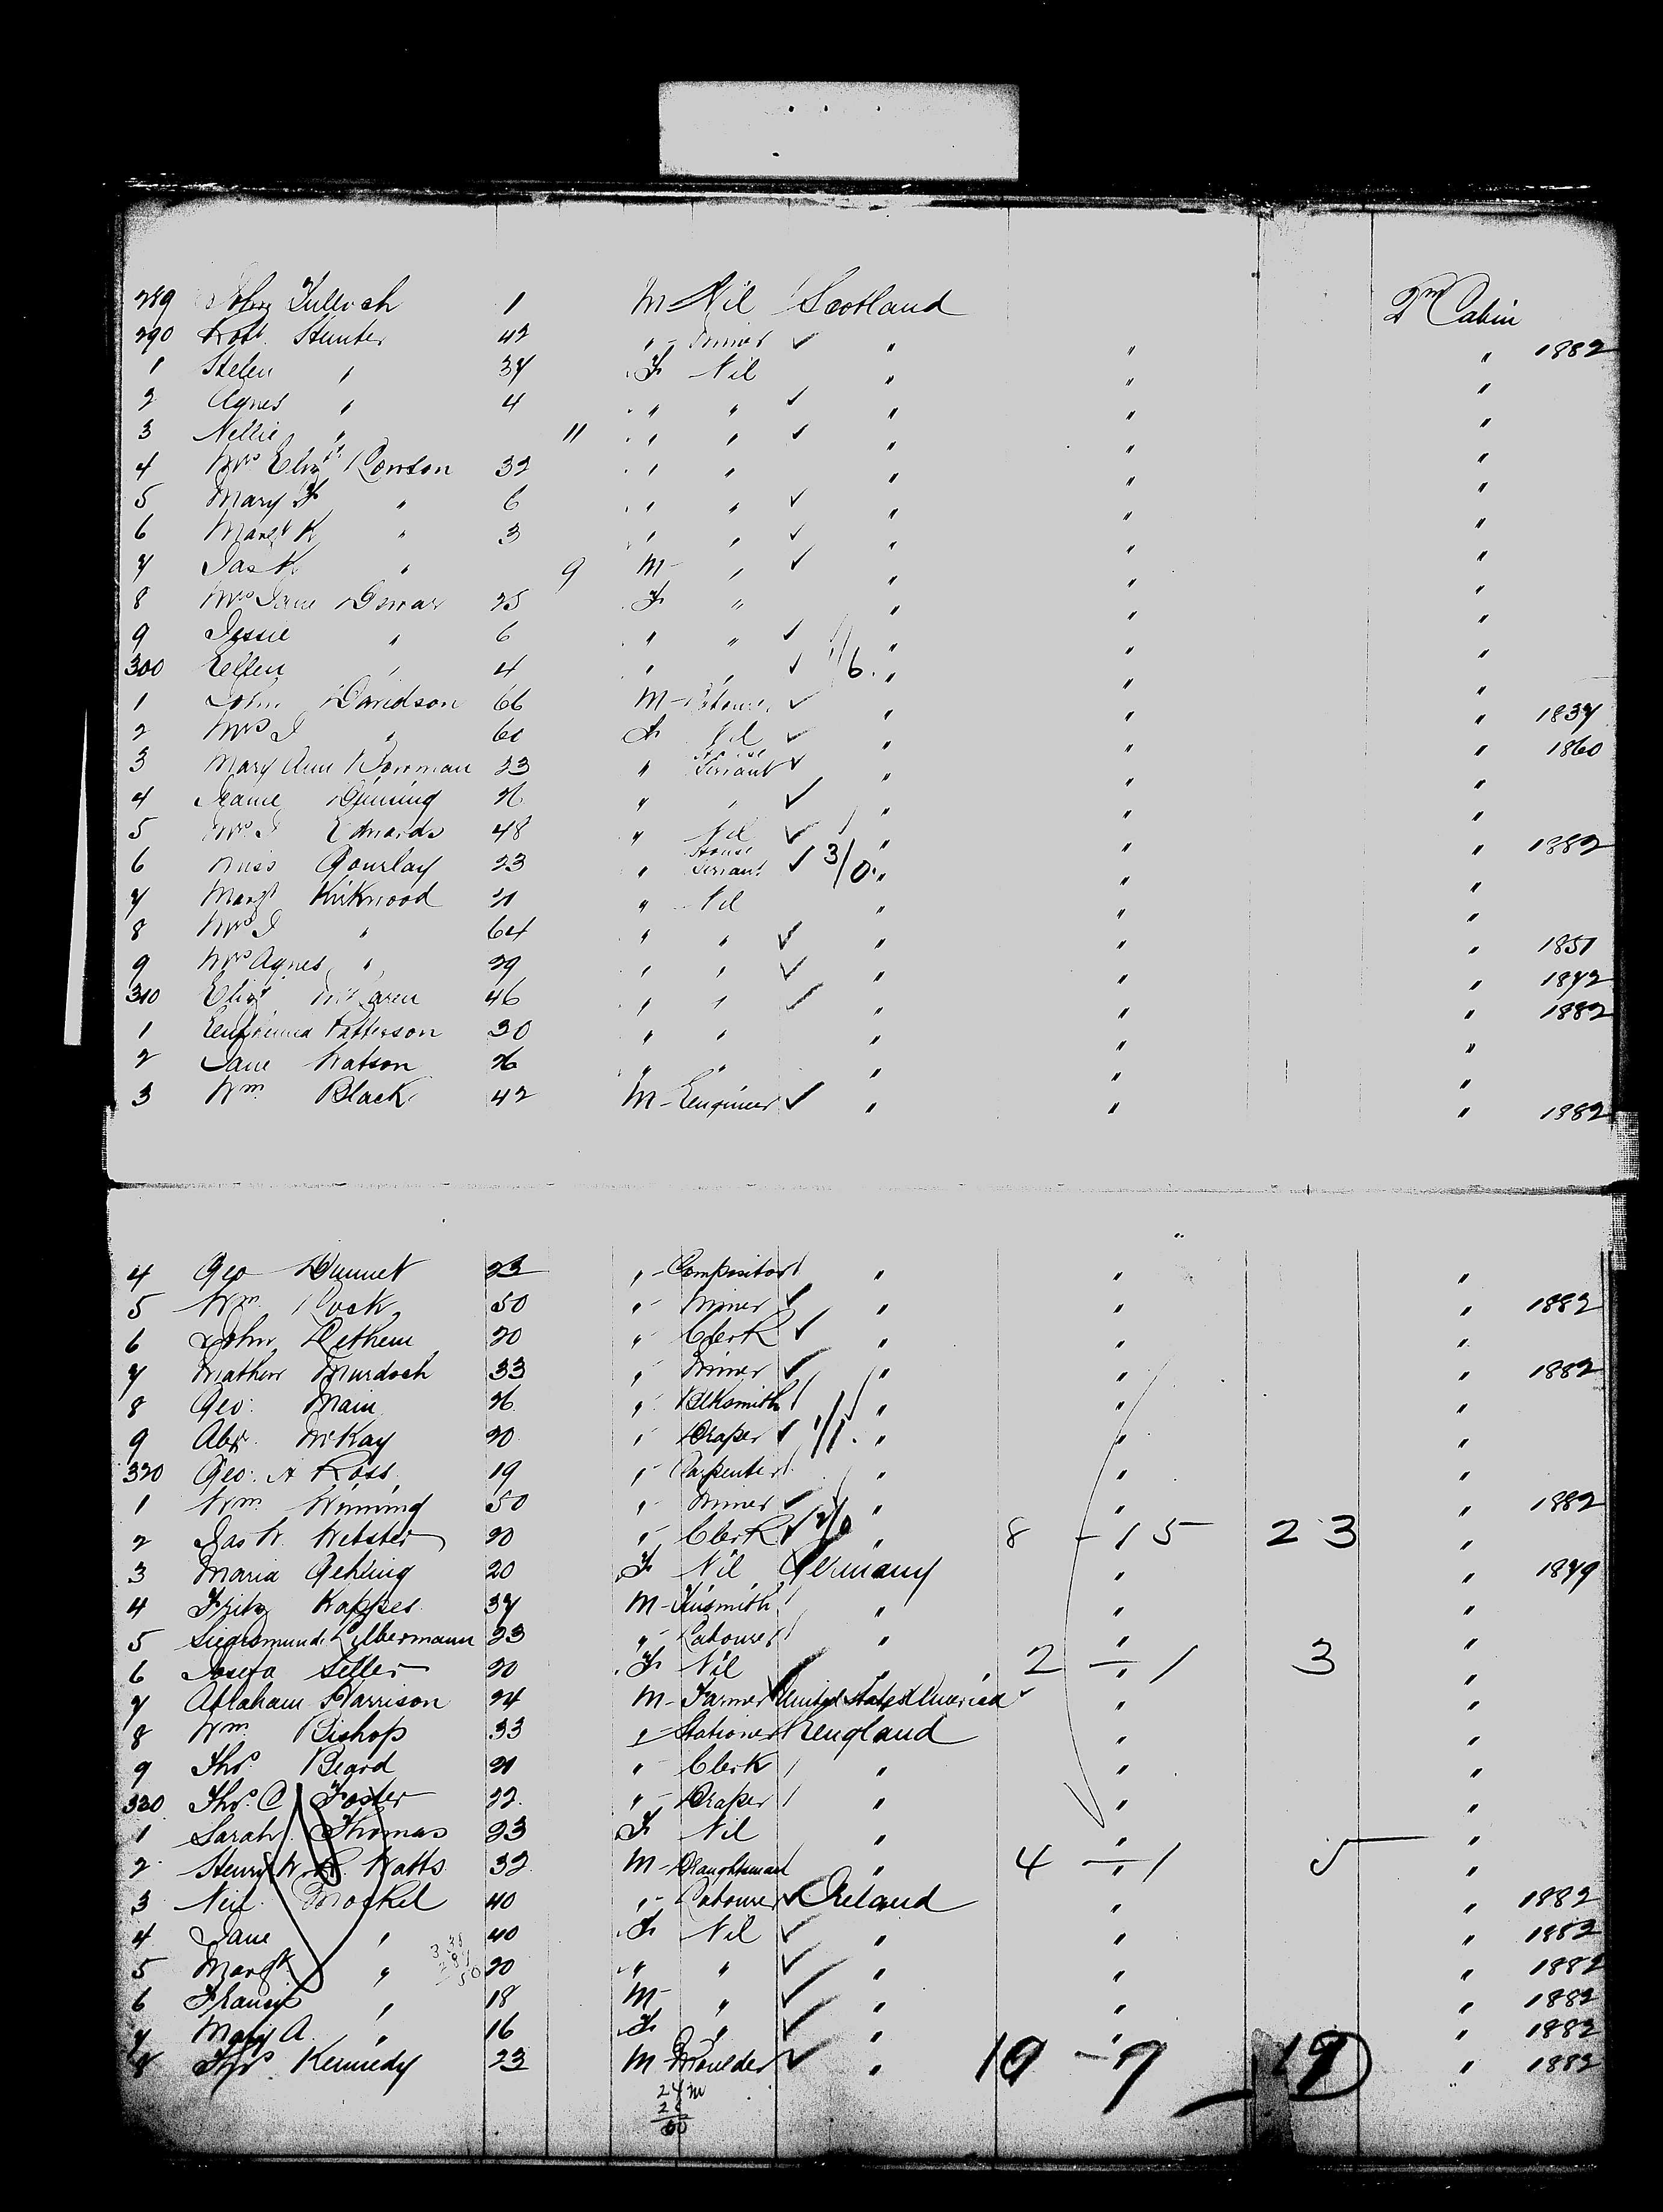 289 Tulloch 1 M Nil Scotland 2nd Cabin
290 Robt. Hunter 42 " Miner ✓ " " " 1882
1 Helen " 37 F Nil " " "
2 Agnes " 4 " " ✓ " " "
3 Nellie " 11 " " ✓ " " "
4 Mrs Elizth 32 " " " " "
5 Mary F " 6 " " ✓ " " "
6 Margt K " 3 " " ✓ " " "
7 Jas K " 9 M " ✓ " " "
8 Mrs Jane Dewar 25 F " " " "
9 Jessie " 6 " " ✓ " " "
300 Ellen " 4 " " ✓ 1/6. " " "
1 John Davidson 66 M Labourer ✓ " " " 1837
2 Mrs J " 60 F Nil ✓ " " " 1860
3 Mary Ann Bowman 23 " House Servant ✓ " " "
4 26 " " ✓ " " "
5 Mrs J Edwards 48 " Nil ✓ " " " 1882
6 Miss Gourlay 23 " House Servant ✓ 3/0. " " "
7 Margt Kirkwood 21 " Nil " " "
8 Mrs J " 64 " " ✓ " " " 1851
9 Mrs Agnes " 29 " " ✓ " " " 1872
310 Elizt McLaren 46 " " ✓ " " " 1882
1 Euphemia Patterson 30 " " " " "
2 Jane Watson 26 " " " " "
3 Wm. Black 42 M Engineer ✓ " " " 1882
4 Geo Dunnet 23 " Compositor " " "
5 Wm. 50 " Miner ✓ " " " 1882
6 John Bethem 20 " Clerk ✓ " " "
7 Mathew Murdoch 33 " Miner ✓ " " " 1882
8 Geo. Main 26 " Blksmith " " "
9 Alexr. McKay 20 " Draper ✓ 1/1. " " "
320 Geo. A Ross 19 " Carpenter " " "
1 Wm. Winning 50 " Miner ✓ " " " 1882
2 Jas W. Webster 20 " Clerk ✓ 2/0 " 8 - 15 23 "
3 Maria Gehling 20 F Nil Germany " " 1879
4 Fritz Kappes 37 M Tinsmith " " "
5 Siegesmund Lilbermann 23 " Labourer " " "
6 Josefa Seller 20 F Nil " 2 - 1 3 "
7 Abraham Harrison 24 M Farmer United States America " "
8 Wm. Bishop 33 " Stationer England " "
9 Thos. Beard 21 " Clerk " " "
330 Thos. C Foster 22 " Draper " " "
1 Sarah Thomas 23 F Nil " " "
2 Henry W. R. Watts 32 M Draughtsman " 4 - 1 5 "
3 Neil 40 " Labourer ✓ Ireland " " 1882
4 Jane " 40 F Nil ✓ " " " 1882
5 Margt " 20 " " ✓ " " " 1882
6 Francis " 18 M " ✓ " " " 1882
7 Mary A. " 16 F " ✓ " " " 1882
8 Thos. Kennedy 23 M Moulder ✓ " 10 - 9 19 " 1882